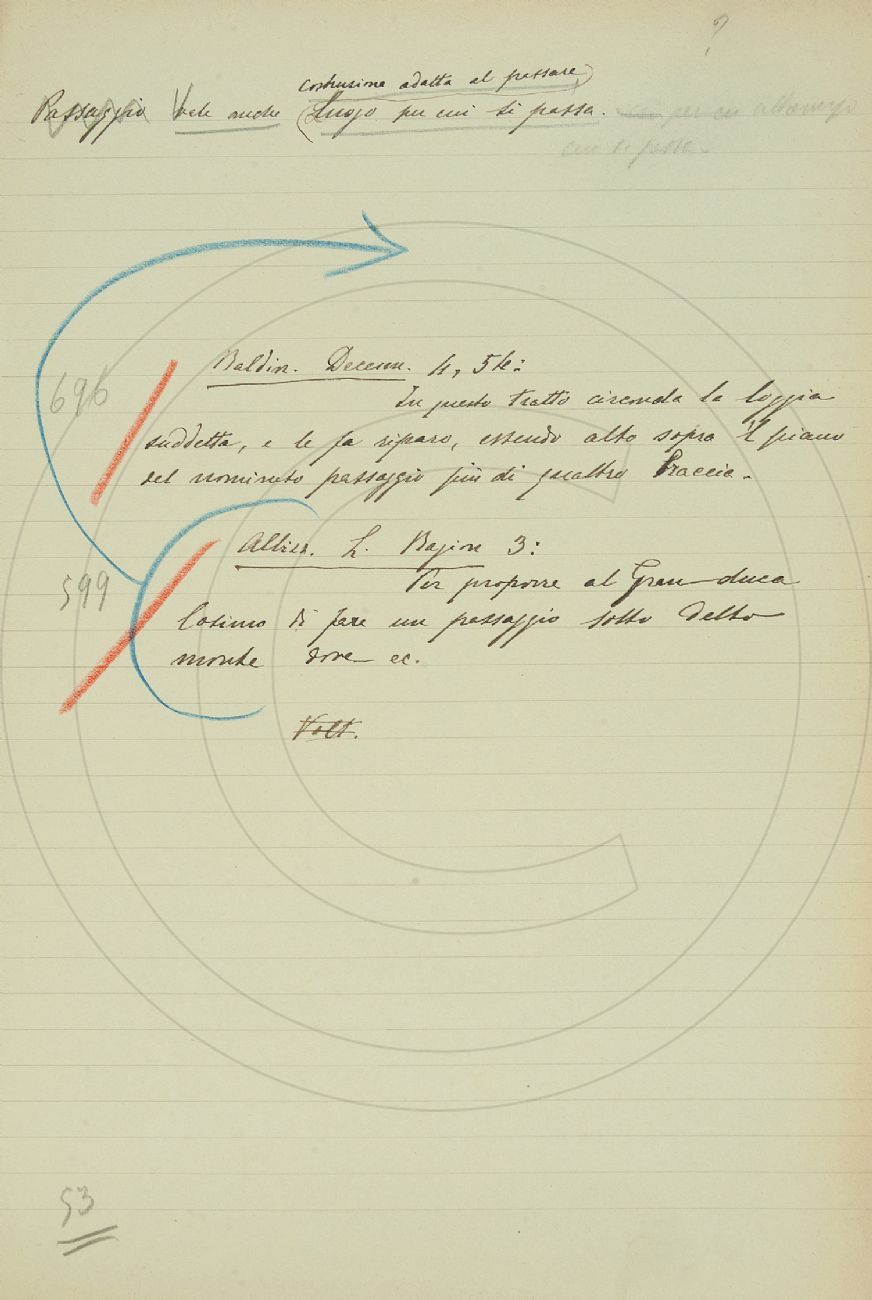 ?
costruzione adatta al passare
Passaggio vale anche Luogo per cui si passa. per cui
cui si passa.
696
Baldin. Decenn. 4, 54:
In questo tratto circonda la loggia
suddetta, e le fa riparo, essendo alto sopra il piano
del nominato passaggio più di quattro braccia.
599
Albizz. L. Ragion 3:
Per proporre al Gran duca
Cosimo di fare un passaggio sotto detto
monte dove ec.
Volt.
53